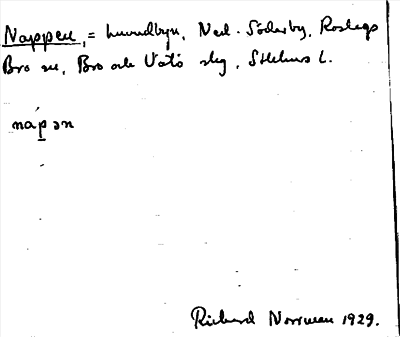 Nappen, = huvudbyn, Ned. Söderby, Roslags
Bro sn, Bro och Vätö slg, Sthlms l.
nápən
Richard Norrman 1929.